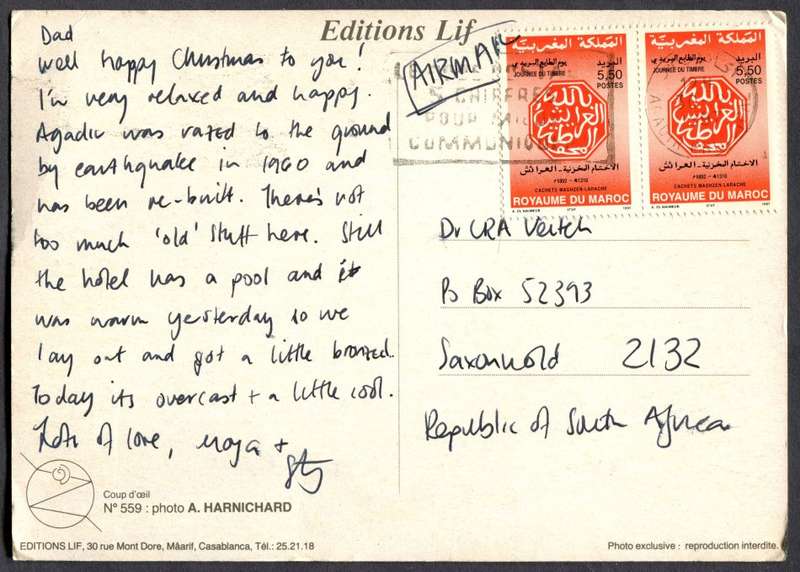 Editions Lif
Dad
Well happy Christmas to you!
I'm very relaxed and happy.
Agadir was razed to the ground
by earthquake in 1960 and
has been re-built. There's not
too much 'old' stuff here. Still
the hotel has a pool and it
was warm yesterday so we
lay out and got a little bronzed.
Today its overcast + a little cool.
Lots of love, Moya +
Coup d'œil
N° 559 : photo A. HARNICHARD
EDITIONS LIF, 30 rue Mont Dore, Mâarif, Casablanca, Tél.: 25.21.18
AIRMAIL
5 CHIFFRES
POUR
COMMUNI
المملكة المغربية
يوم الطابع البريدي
البريد
JOURNEE DU TIMBRE
5,50
POSTES
الاختام المخزنية - العرائش
1892 - 1310
CACHETS MAGHZEN-LARACHE
ROYAUME DU MAROC
1997
المملكة المغربية
يوم الطابع البريدي
البريد
JOURNEE DU TIMBRE
5,50
POSTES
الاختام المخزنية - العرائش
1892 - 1310
CACHETS MAGHZEN-LARACHE
ROYAUME DU MAROC
1997
Dr CRA Veitch
Po Box 52393
Saxonwold 2132
Republic of South Africa
Photo exclusive : reproduction interdite.